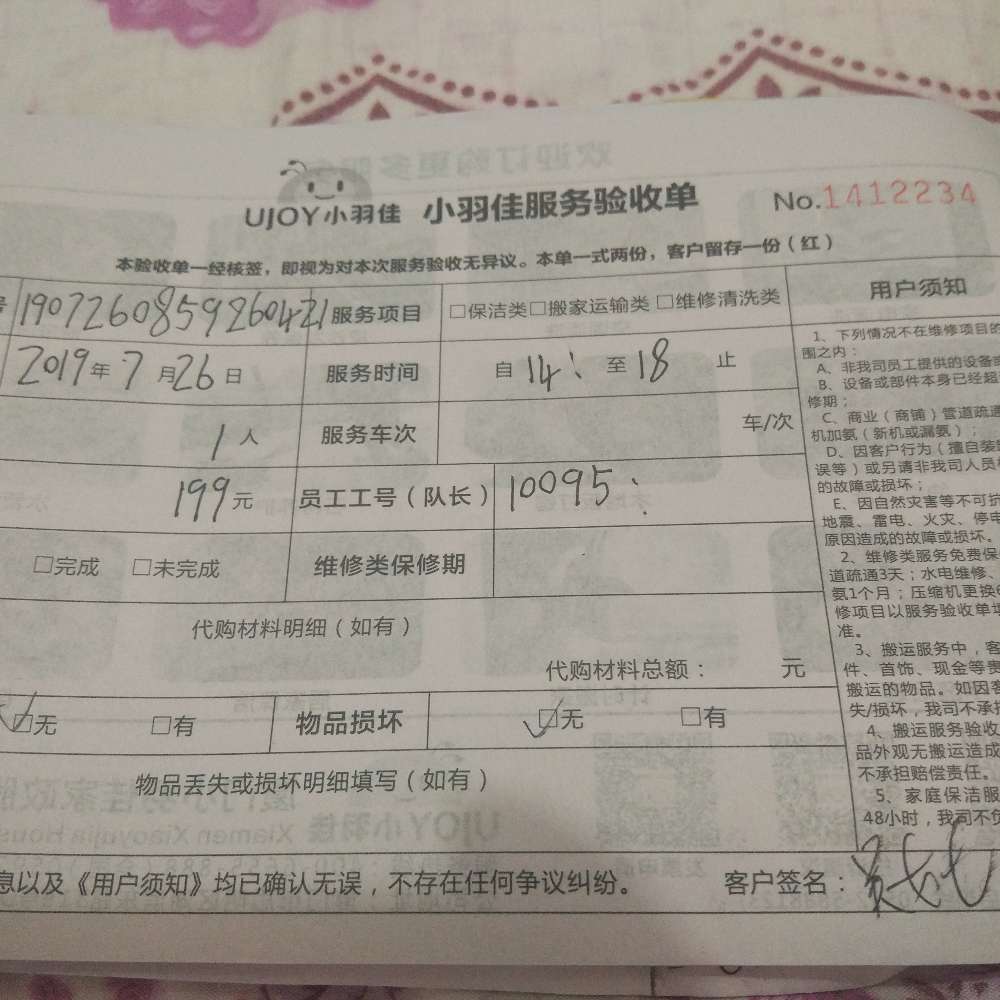 UJOY小羽佳 小羽佳服务验收单 No.1412234
本验收单一经核签，即视为对本次服务验收无异议。本单一式两份，客户留存一份（红）
1907260859260421 服务项目 □保洁类□搬家运输类 □维修清洗类 用户须知
2019年7月26日 服务时间 自14: 至18 止
1人 服务车次 车/次
199元 员工工号（队长）10095
□完成 □未完成 维修类保修期
代购材料明细（如有）
代购材料总额： 元
☑无 □有 物品损坏 ☑无 □有
物品丢失或损坏明细填写（如有）
息以及《用户须知》均已确认无误，不存在任何争议纠纷。 客户签名：
1、下列情况不在维修项目的
围之内：
A、非我司员工提供的设备或
B、设备或部件本身已经超
修期；
C、商业（商铺）管道疏通
机加氨（新机或漏氨）；
D、因客户行为（擅自装
误等）或另请非我司人员
的故障或损坏；
E、因自然灾害等不可抗
地震、雷电、火灾、停电
原因造成的故障或损坏。
2、维修类服务免费保
道疏通3天；水电维修、
氨1个月；压缩机更换
修项目以服务验收单
准。
3、搬运服务中，客
件、首饰、现金等贵
搬运的物品。如因客
失/损坏，我司不承
4、搬运服务验收
品外观无搬运造成
不承担赔偿责任。
5、家庭保洁服
48小时，我司不负